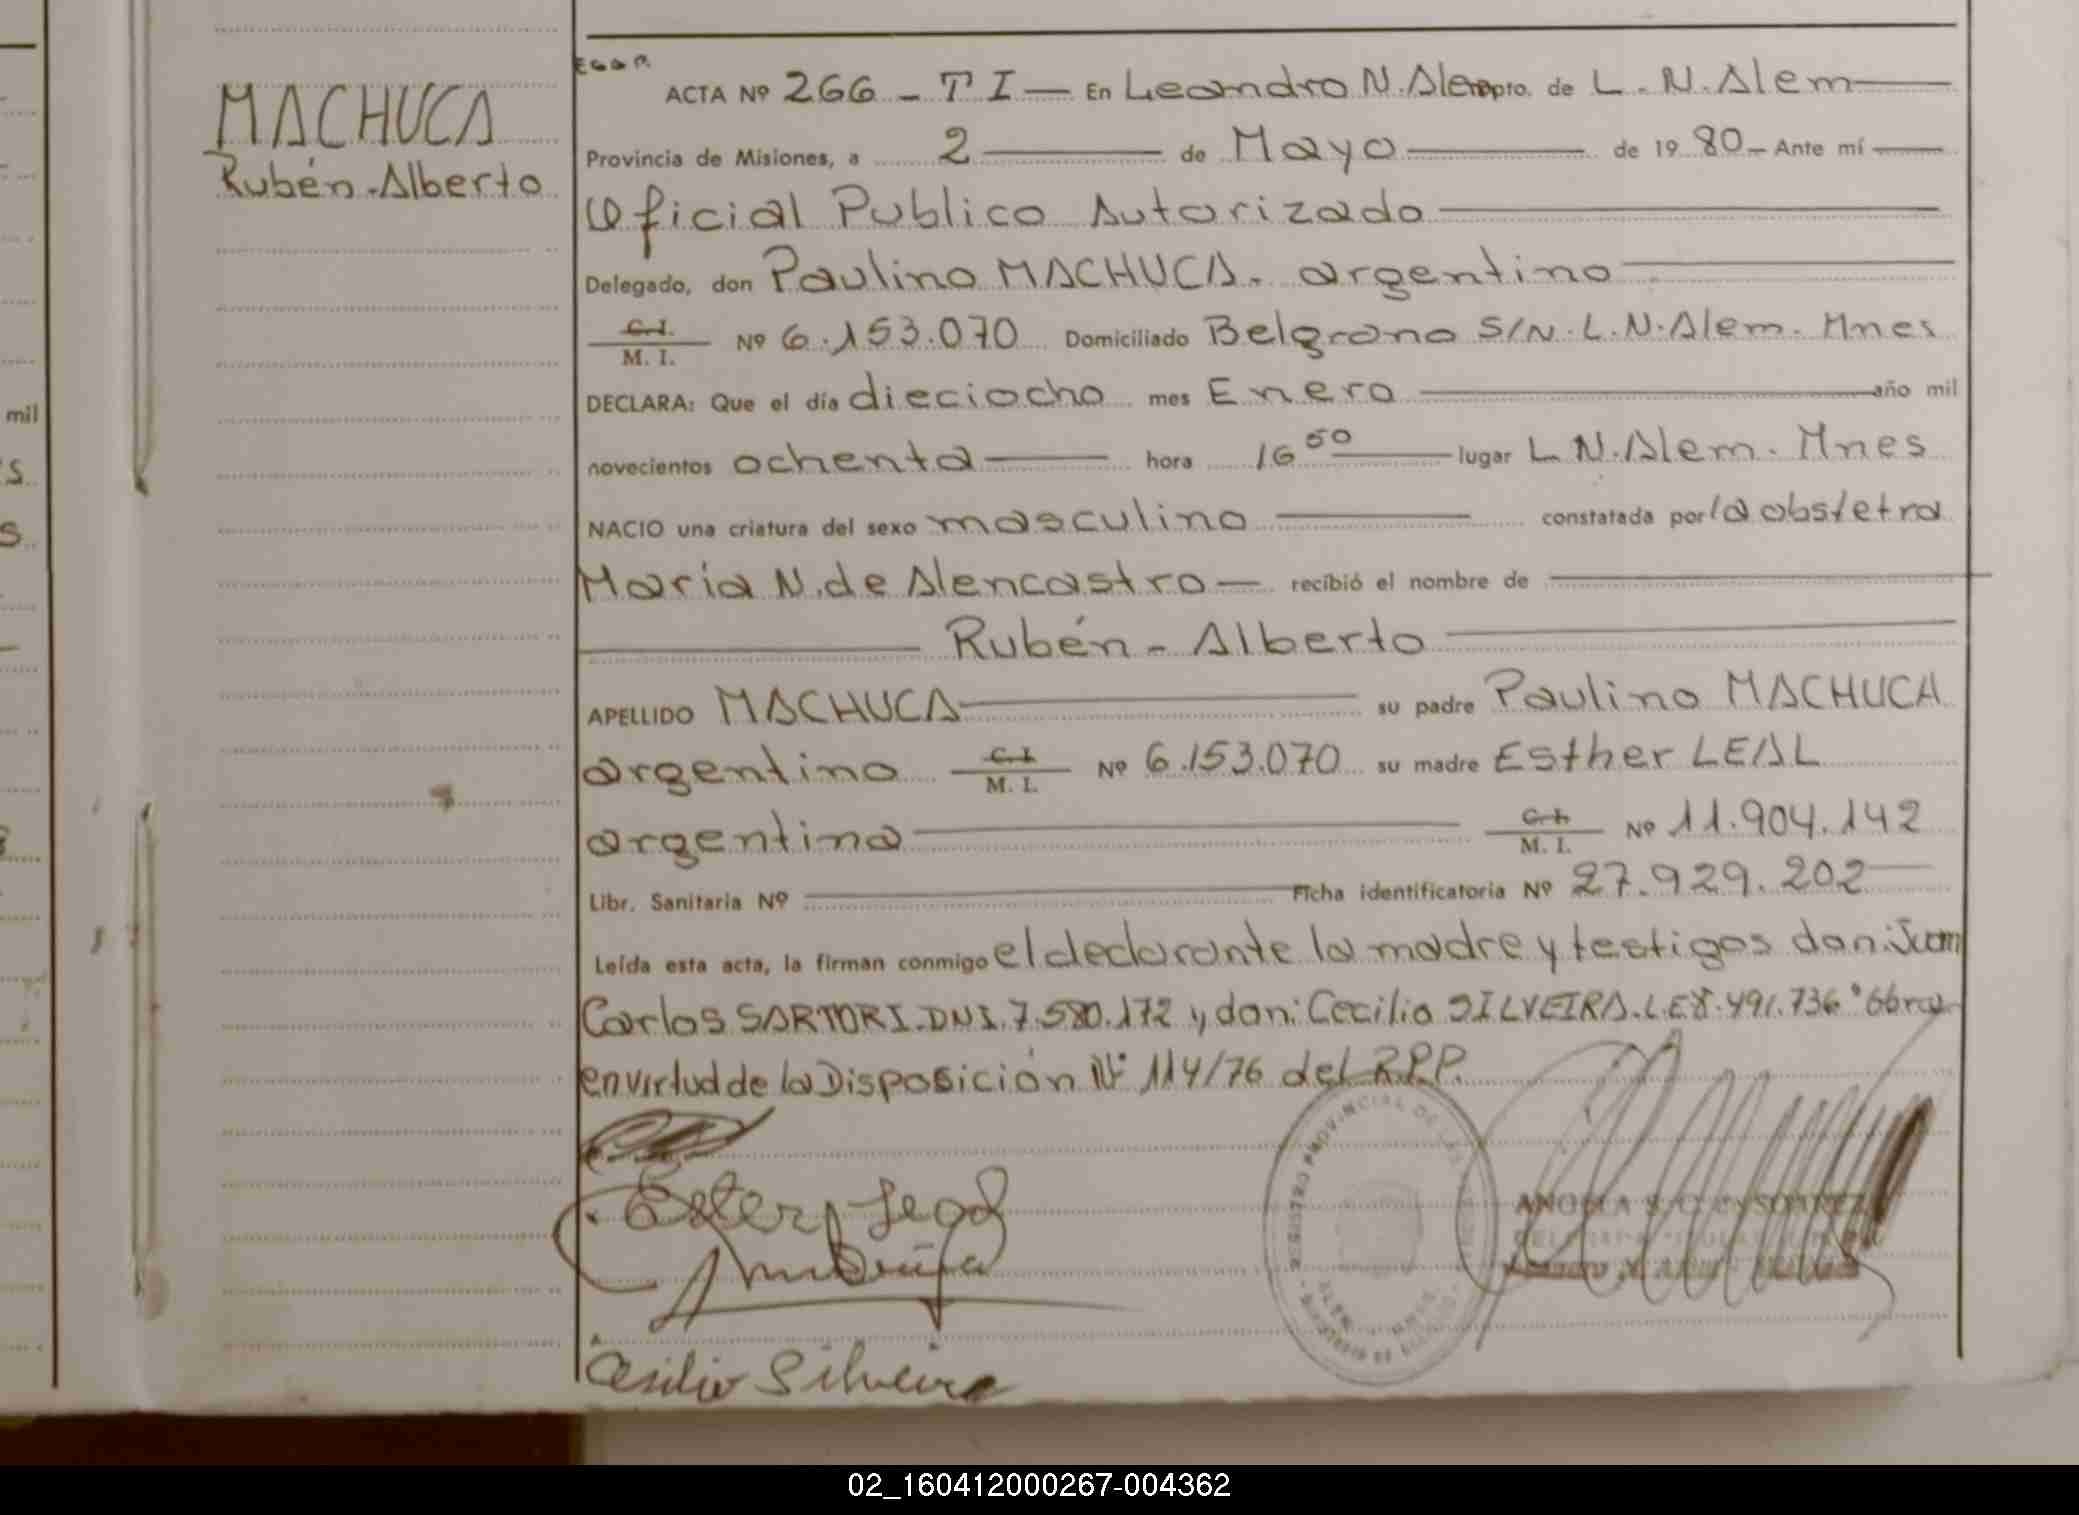 mil
MACHUCA
Rubén-Alberto
ACTA Nº 266 - T I - En Leandro N. Alem Dpto. de L. N. Alem
Provincia de Misiones, a 2 de Mayo de 1980 - Ante mí
Oficial Publico Autorizado
Delegado, don Paulino MACHUCA. argentino
C.I. M. I. Nº 6.153.070 Domiciliado Belgrano S/N. L. N. Alem. Mnes
DECLARA: Que el día dieciocho mes Enero año mil
novecientos ochenta hora 16 50 lugar L N. Alem. Mnes
NACIO una criatura del sexo masculino constatada por la obstetra
Maria N. de Alencastro - recibió el nombre de
Rubén - Alberto
APELLIDO MACHUCA su padre Paulino MACHUCA
argentino C.I. M. I. Nº 6.153.070 su madre Esther LEAL
argentina C.I. M. I. Nº 11.904.142
Libr. Sanitaria Nº Ficha identificatoria Nº 27.929.202
Leída esta acta, la firman conmigo el declarante la madre y testigos don: Juan
Carlos SARTORI. DNI. 7.580.172 y don: Cecilio SILVEIRA. L.E 8.491.736
en virtud de la Disposición Nº 114/76 del R.P.P.
Ester Leal
Cesilio Silveira
REGISTRO PROVINCIAL DE LAS
02_160412000267-004362